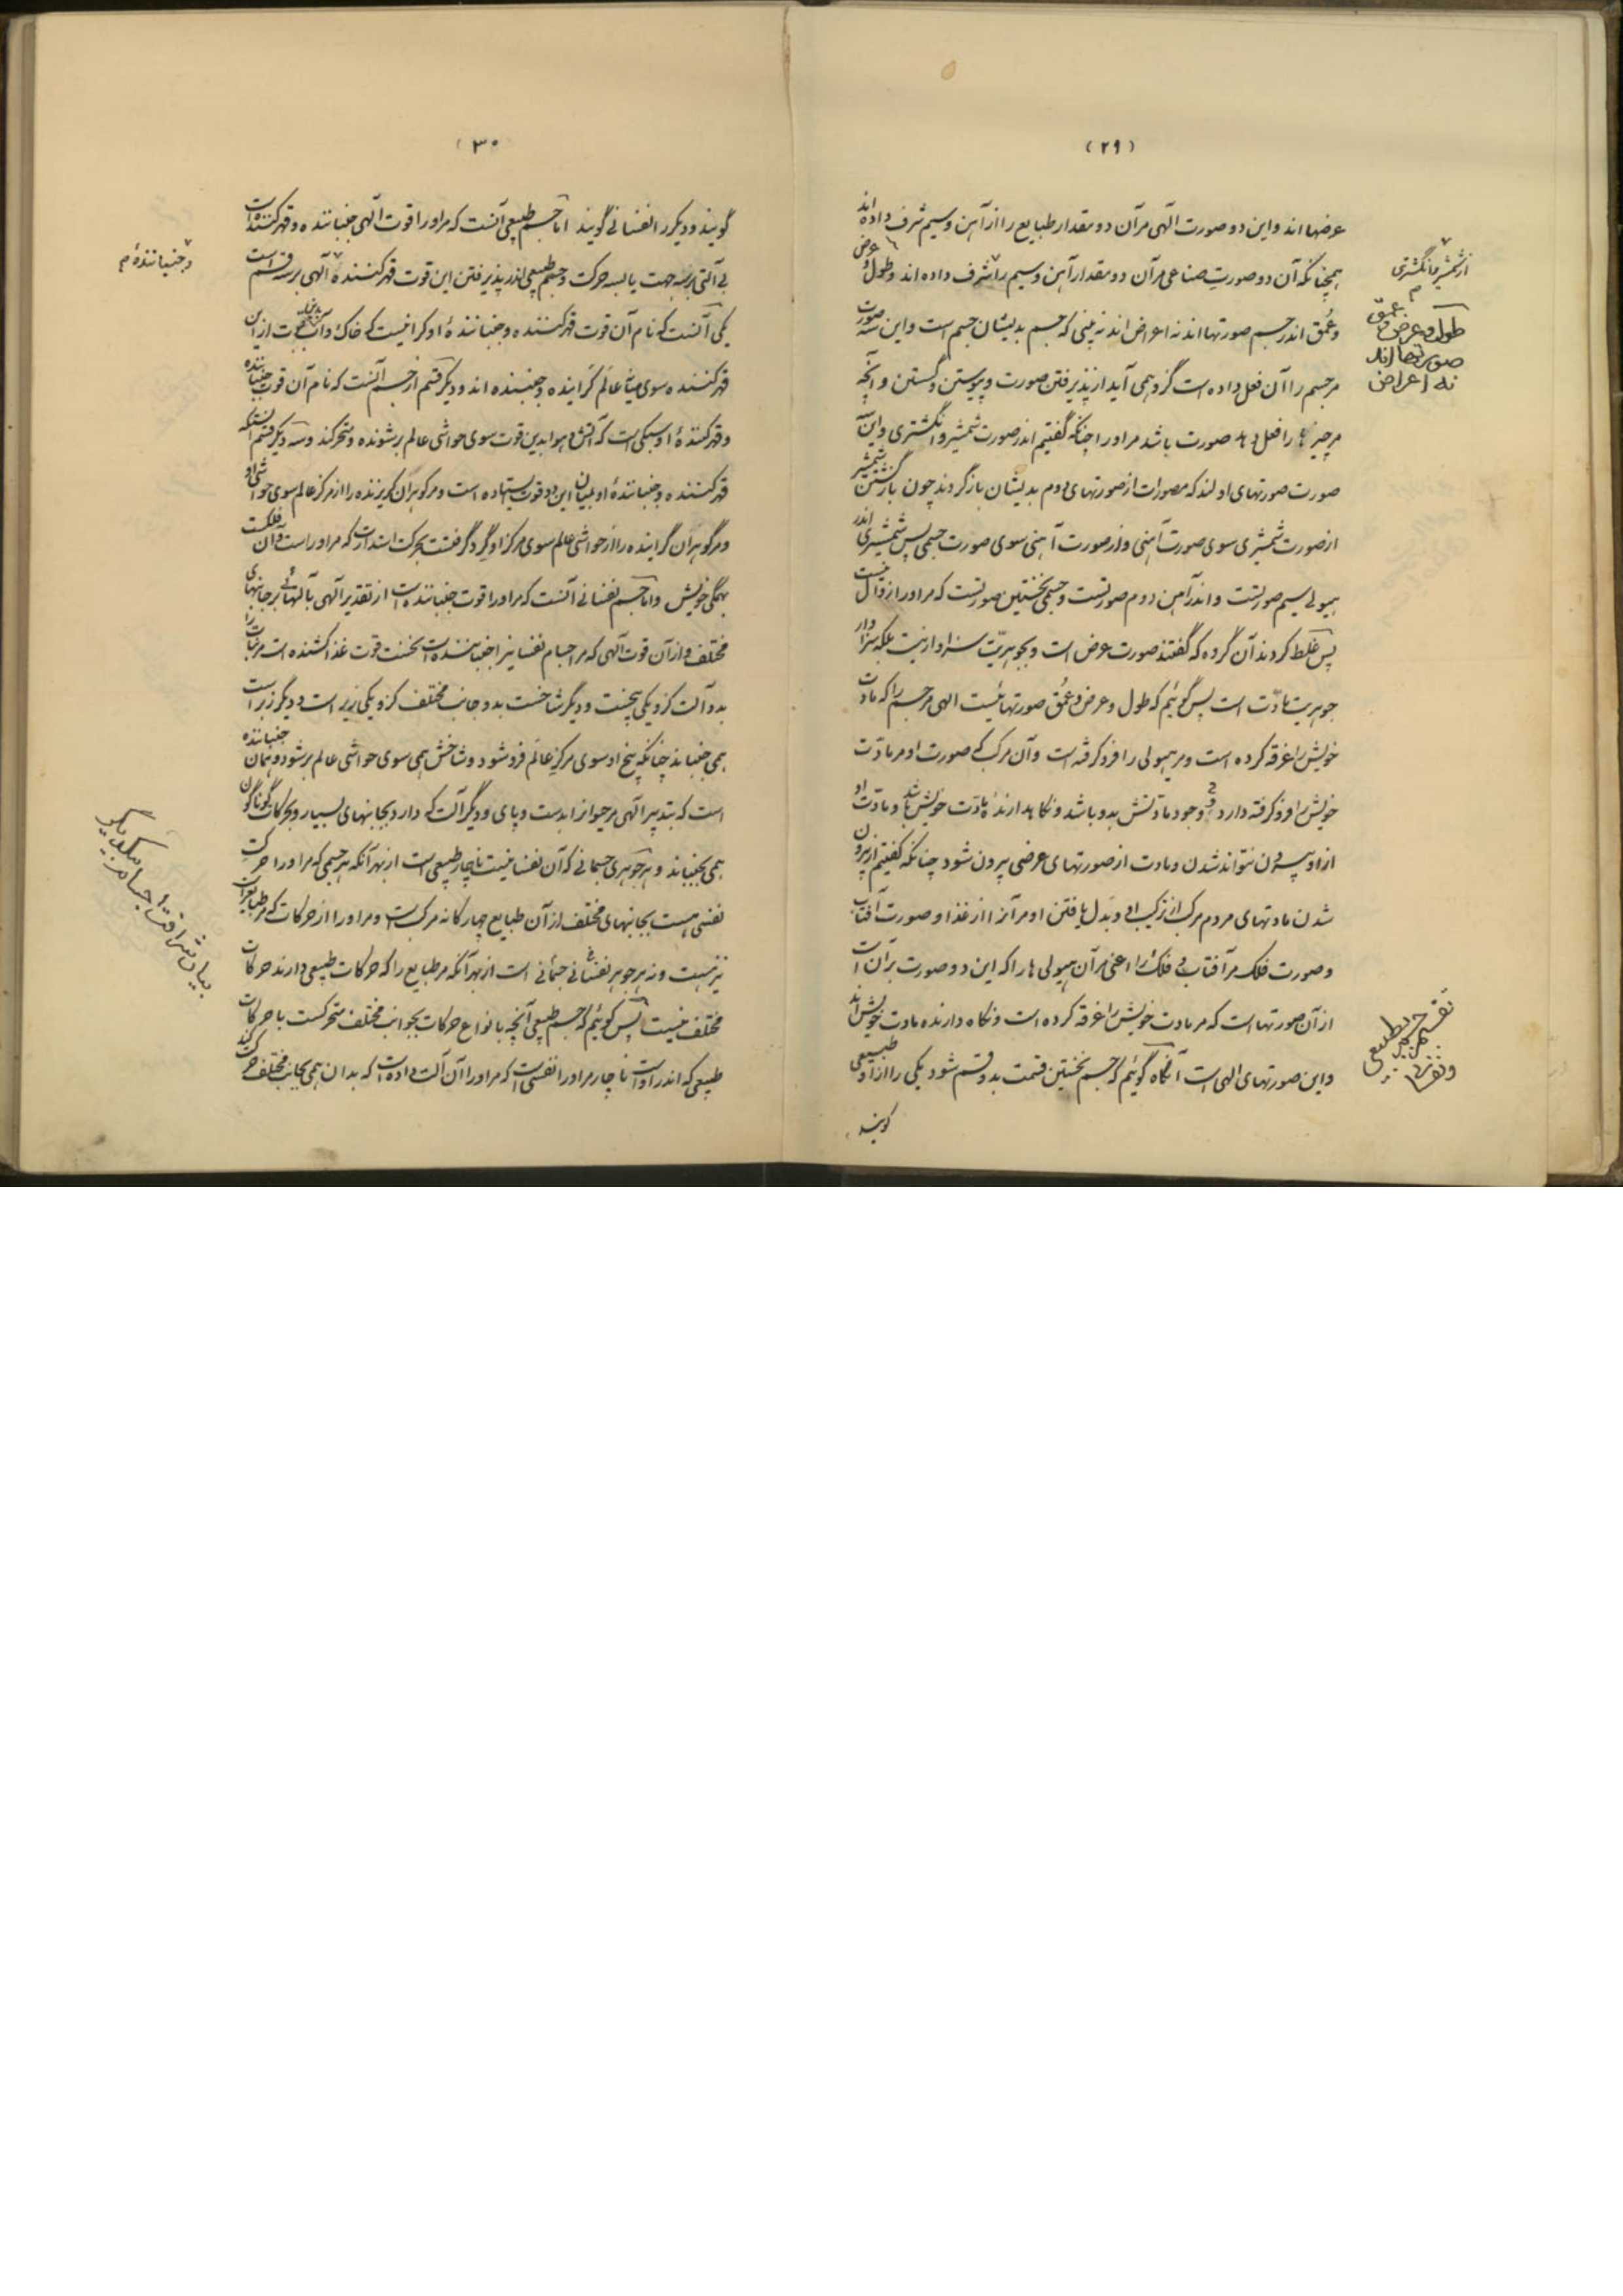 (۲۹)
عرضها اند و این دو صورت الهی مر آن دو مقدار طبایع را از آهن و سیم شرف داده اند
همچنانکه آن دو صورت صناعی مر آن دو مقدار آهن و سیم را شرف داده اند و طول و عرض
و عمق اندر جسم صورتها اند نه اعراض اند نه بینی که جسم بدیشان جسم است و این سه صورت
مر جسم را آن فعل داده است کزو همی آید از پذیرفتن صورت و پیوستن و گستن و آنچه
مر چیزها را فعل دهد صورت باشد مر او را چنانکه گفتیم اندر صورت شمشیر و انگشتری و این
صورت صورتهای اولند که مصورات از صورتهای دوم بدیشان بازگردند چون بازگشتن شمشیر
از صورت شمشیری سوی صورت آهنی و از صورت آهنی سوی صورت جسمی پس شمشیری اندر
هیولی سیم صورتست و اندر آهن دوم صورتست و جسمی نخستین صورتست که مر او را زوال نیست
پس غلط کردند آن گروه که گفتند صورت عرض است و بجوهریت سزاوار نیست بلکه سزاوار
جوهریت مادت است پس گوئیم که طول و عرض و عمق صورتهائیست الهی مر جسم را که مادت
خویش را غرقه کرده است و مر هیولی را فرو گرفته است و آن مرکب که صورت او مر مادت
خویش را فرو گرفته دارد وجود مادتش بدو باشد و نگاهدارندهٔ مادت خویش باشد و مادت او
از او بیرون نتواند شدن و مادت از صورتهای عرضی بیرون شود چنانکه گفتیم از بیرون
شدن مادتهای مردم مرکب از ترکیب او و بدل یافتن او مر آنرا از غذا و صورت آفتاب
و صورت فلک مر آفتاب و فلک را اعنی مر آن هیولی ها را که این دو صورت بر آن است
از آن صورتها است که مر مادت خویش را غرقه کرده است و نگاه دارنده مادت خویش اند
و این صورتهای الهی است آنگاه گوئیم که جسم بنخستین قسمت بدو قسم شود یکی را از او طبیعی
گویند
از شمشیر و انگشتری م
طول و عرض و عمق
صورتها اند
نه اعراض
تقسیم جسم بطبیعی
و نفسانی
(۳۰
گویند و دیگر را نفسانی گویند اما جسم طبیعی آنست که مر او را قوت الهی جنباننده و قهر کننده است
بی آلتی بر سه جهت یا بسه حرکت و جسم طبیعی اندر پذیرفتن این قوت قهر کننده الهی بر سه قسم است
یکی آنست که نام آن قوت قهر کننده و جنباننده او گرانیست که خاک و آب بدان قوت از این
قهر کننده سوی میانه عالم گراینده و جنبنده اند و دیگر قسم از جسم آنست که نام آن قوت جنباننده
و قهر کنندهٔ او سبکی است که آتش و هوا بدین قوت سوی حواشی عالم بر شونده و متحرکند و سه دیگر قسم آنستکه
قهر کننده و جنبانندهٔ او بمیان این دو قوت ایستاده است و مر گوهران گریزنده را از مرکز عالم سوی حواشی او
و مر گوهران گراینده را از حواشی عالم سوی مرکز او گرد گرفتست بحرکت استدارت که مر او راست و آن فلکست
بهمگی خویش و اما جسم نفسانی آنست که مر او را قوت جنباننده است از تقدیر الهی بآلتهائی بر جانبهای
مختلف و از آن قوت الهی که مر اجسام نفسانی را جنباننده است نخست قوت غذا کشنده است مر نبات را
بدو آلت کزو یکی بیخست و دیگر شاخست بدو جانب مختلف کزو یکی زیر است و دیگر زبر است
همی جنباند چنانکه بیخ او سوی مرکز عالم فرو شود و شاخش همی سوی حواشی عالم بر شود و همان جنباننده
است که بتدبیر الهی مر حیوانرا بدست و پای و دیگر آلت که دارد بجانبهای بسیار و بحرکات گوناگون
همی بجنباند و هر جوهری جسمانی که آن نفسانی نیست ناچار طبیعی است از بهر آنکه هر جسمی که مر او را حرکت
نفسی هست بجانبهای مختلف از آن طبایع چهارگانه مرکب است و مر او را از حرکات که مر طبایع راست
نیز هست و نه هر جوهر نفسانی جسمانی است از بهر آنکه مر طبایع را که حرکات طبیعی دارند حرکات
مختلف نیست پس گوئیم که جسم طبیعی آنچه بانواع حرکات بجوانب مختلف متحرکست با حرکات
طبیعی که اندر اوست ناچار مر او را نفسی است که مر او را آن آلت داده است که بدان همی بجانب مختلف حرکت کند
و جنبانندهٔ م
بیان شرافت اجسام بیکدیگر